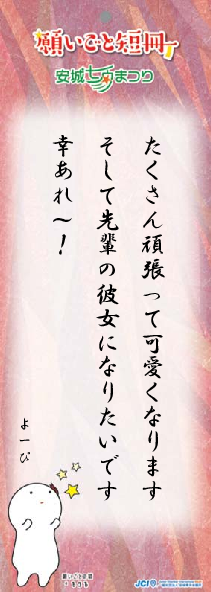 願いごと短冊
安城七夕まつり
たくさん頑張って可愛くなります
そして先輩の彼女になりたいです
幸あれ〜！
よーぴ
願いごと短冊
JCI